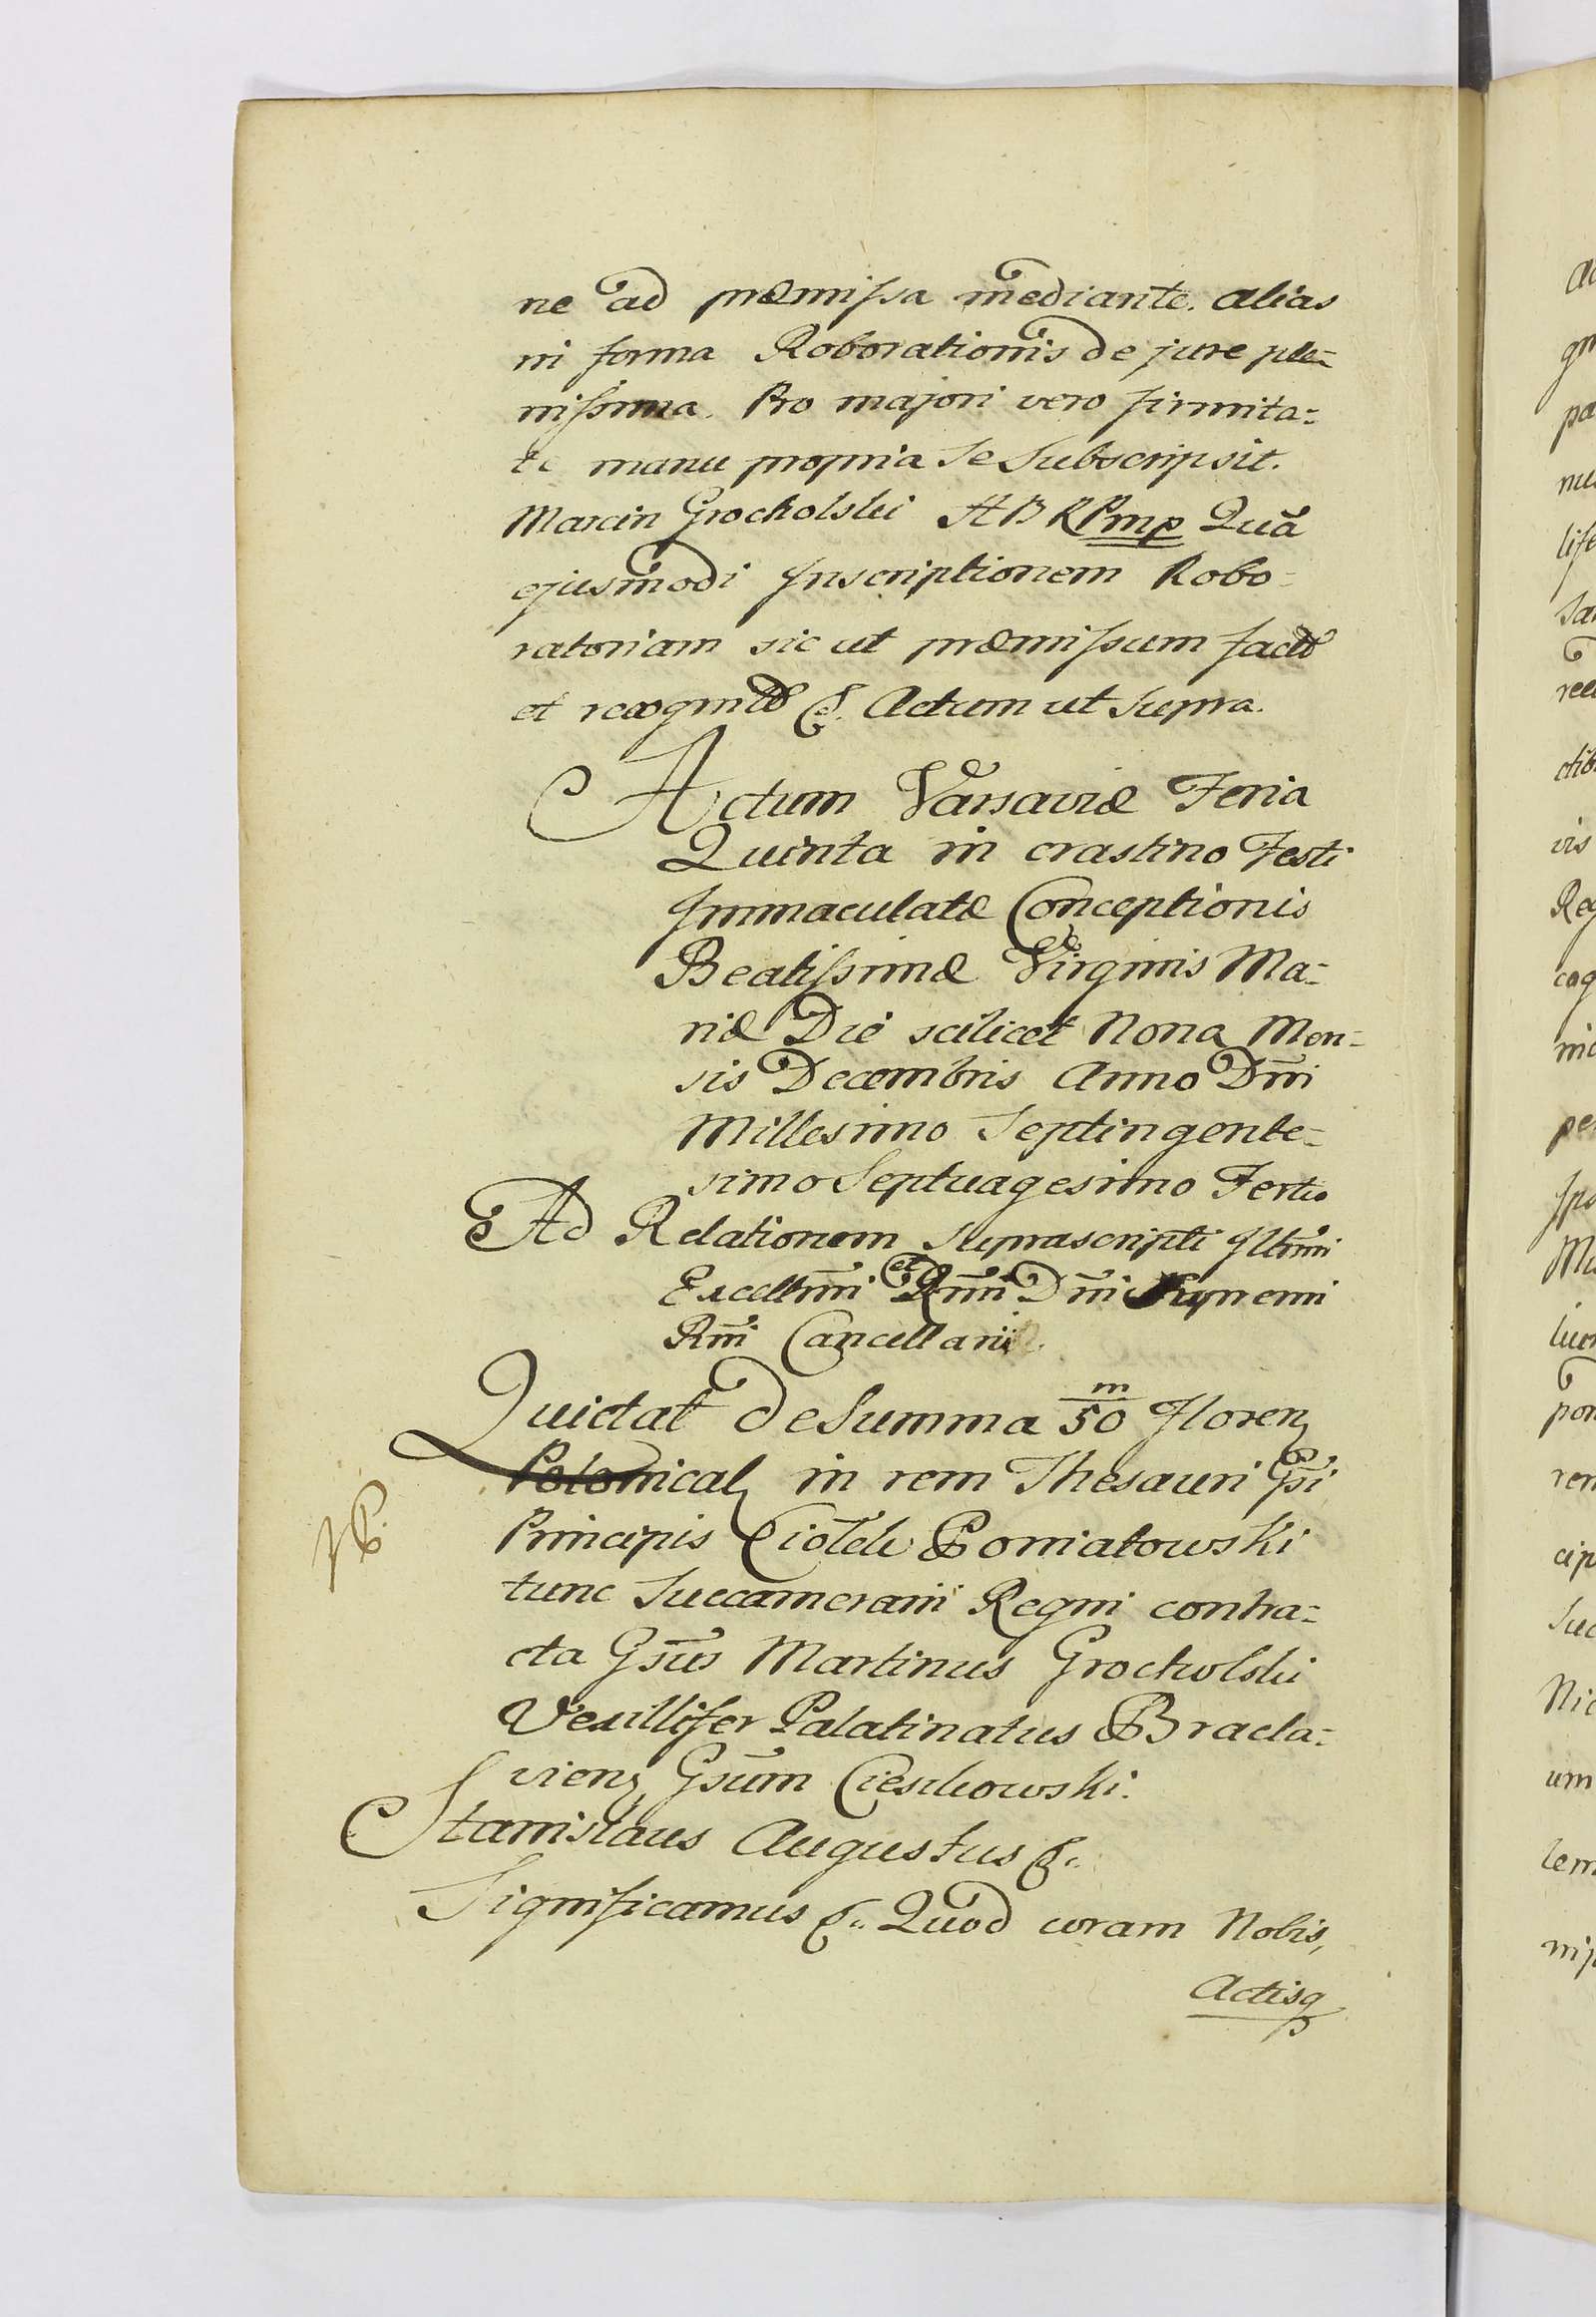 ne ad præmissa mediante. alias
in forma Roborationis de jure ple=
nissima. Pro majori vero firmita=
te manu propria se Subscripsit.
Marcin Grocholski Pmp Quã
ejusmodi Inscriptionem Robo=
ratoriam sic ut præmissum facto
et recognito &. Actum ut Supra.
Actum Varsaviæ Feria
Quinta in crastino Festi
Immaculatæ Conceptionis
Beatissimæ Virginis Ma=
riæ Die scilicet Nona Men=
sis Decembris Anno Dñi
Millesimo Septingente=
simo Septuagesimo Tertio
Ad Relationem suprascripti Illmi
Excellmi et Rmi Dñi Supremi
Rñi Cancellarii.
Quietat de Summa m/50 Floren
Polonical in rem Thesauri
Principis Ciołek Poniatowski
tunc Succamerarii Regni contra=
cta Gsus Martinus Grocholski
Vexillifer Palatinatus Bracla=
vien Gsum Cieszkowski.
Stanislaus Augustus &.
Significamus &. Quod coram Nobis,
Actisq